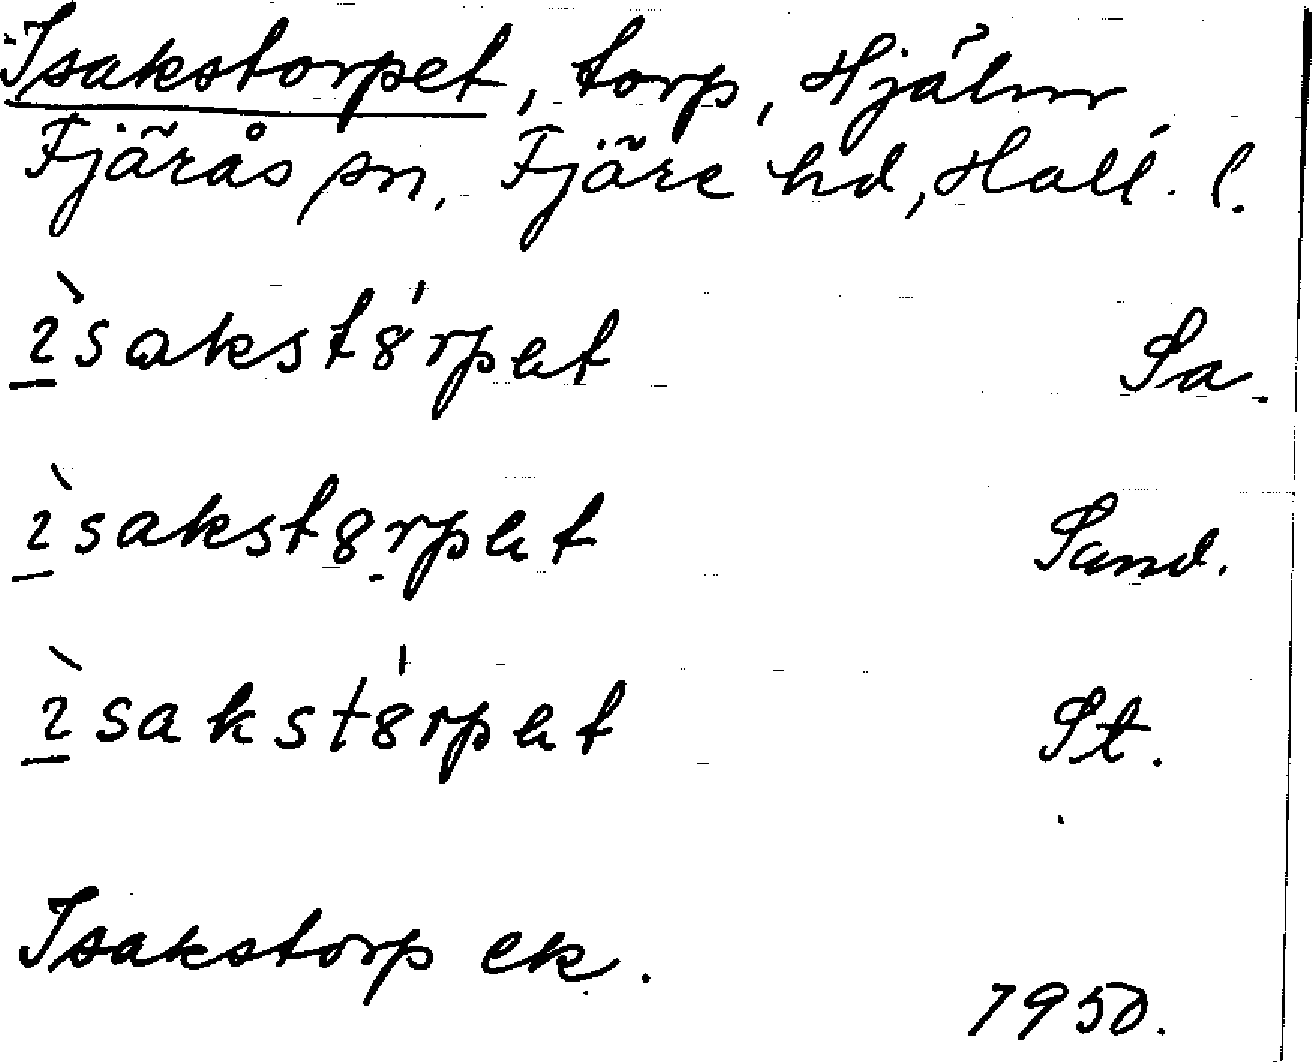 Isakstorpet, torp, Hjälm
Fjärås sn, Fjäre hd, Hall. l.
ì̱sakst8́rpət Sa.
ì̱sakst8rpət Sand.
ì̱sakst8́rpət St.
Isakstorp ek.
1950.